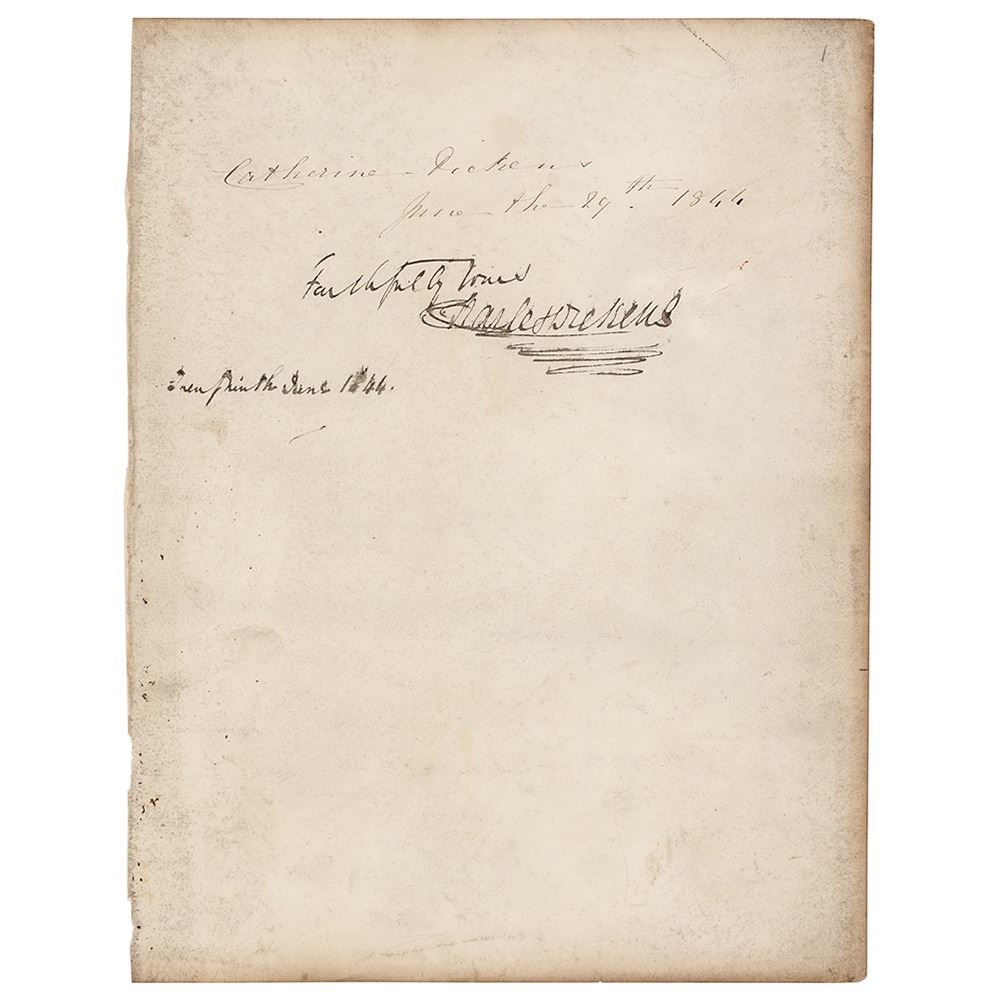 Catherine Dickens
June the 29th. 1844
Faithfully Yours
Charles Dickens
June 1844.